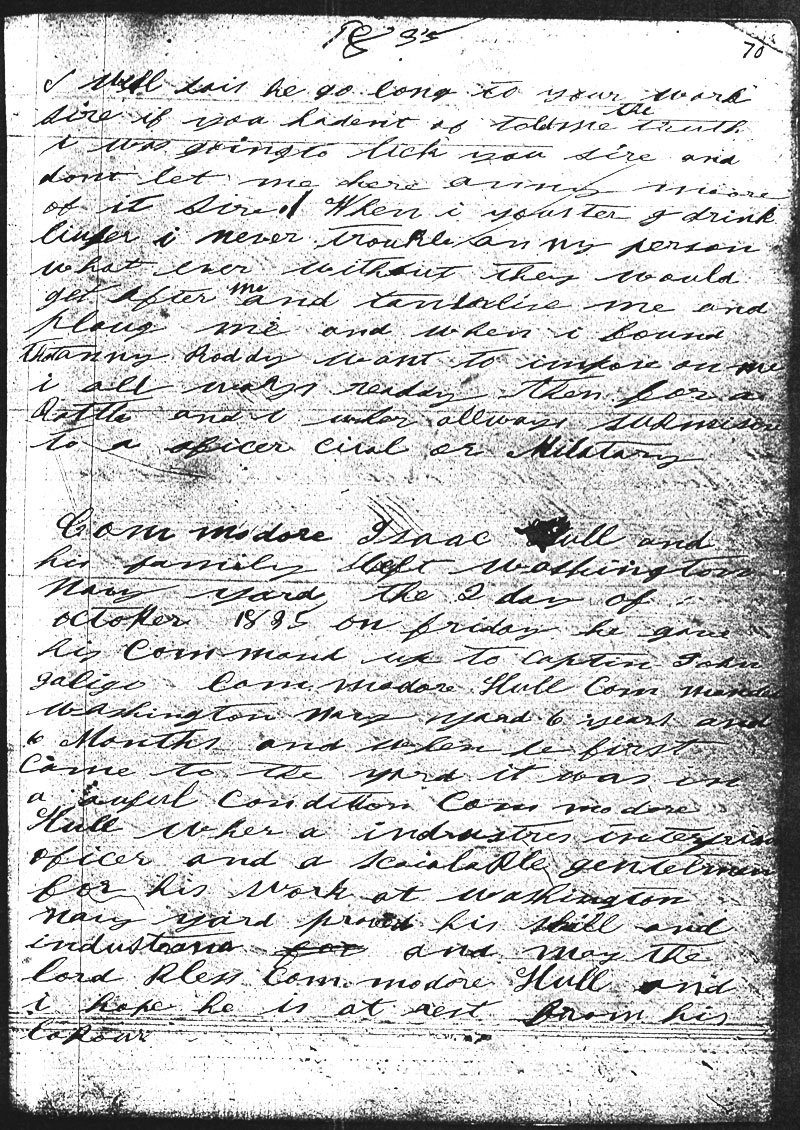 Pg 35
70
I Well sais he go long to your work
sire if you hadent of toldme the truth
i was going to lick you sire and
dont let me here anny moore
of it Sire. When i youster g drink
liuper i never trouble an ny person
what ever without they would
get after me and tantalise me and
plaug me and when i found
that anny boddy want to impose on me
i all ways ready then for a
battle and i wher allways submisive
to a oficer Civel or Milatary
Com modore Isaac Hull and
his family left Washington
Navy yard the 2 day of
october 1835 on friday he gave
his Com mand up to Captin John
galigo Com modore Hull Com manded
Washington Navy yard 6 years and
6 Months and when he first
Came to the yard it was in
a awful Condition Com modore
Hull wher a industres interprise
oficer and a scaialable gentelman
for his work at Washington
Navy yard proved his skill and
industrana for and may the
lord bless Com modore Hull and
i hope he is at rest from his
labour